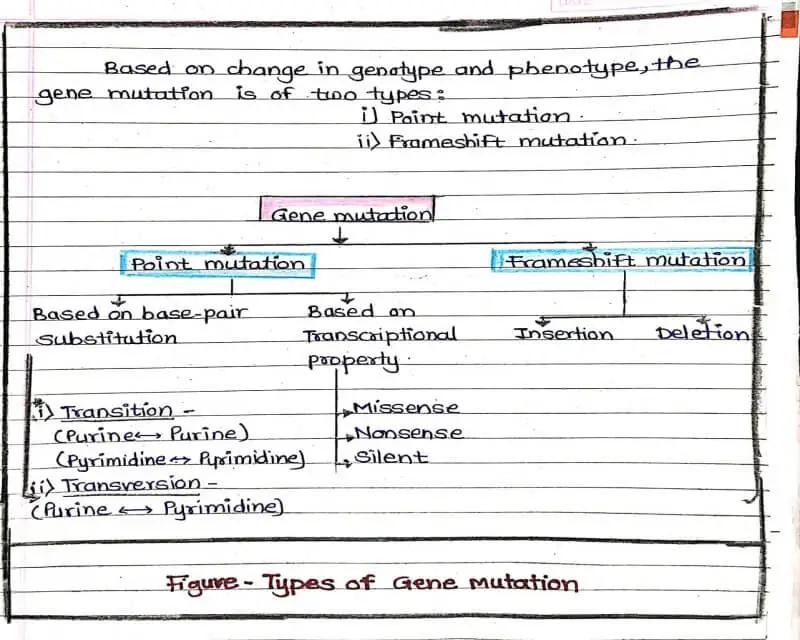 Based on change in genotype and phenotype, the
gene mutation is of two types:
i) Point mutation.
ii) Frameshift mutation.
Gene mutation
Point mutation
Frameshift mutation
Based on base-pair
substitution
Based on
Transcriptional
property.
Insertion
Deletion
i) Transition -
(Purine ↔ Purine)
(Pyrimidine ↔ Pyrimidine)
ii) Transversion -
(Purine ↔ Pyrimidine)
Missense
Nonsense
Silent
Figure - Types of Gene mutation